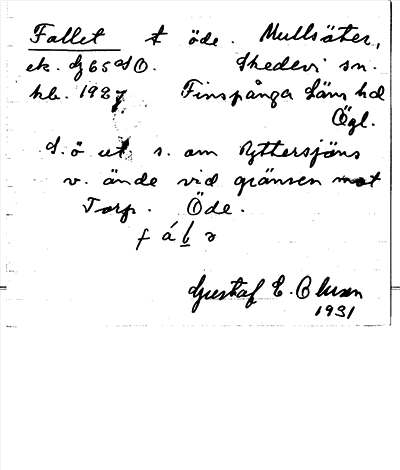 Fallet t öde. Mullsäter,
ek. dz 65 ad O. Skedevi sn.
hb. 1927 Finspånga läns hd
Ögl.
S. ö ut s. om Ryttersjöns
v. ände vid gränsen mot
Torp. Öde.
f á l ə
Gustaf E. Olsson
1931